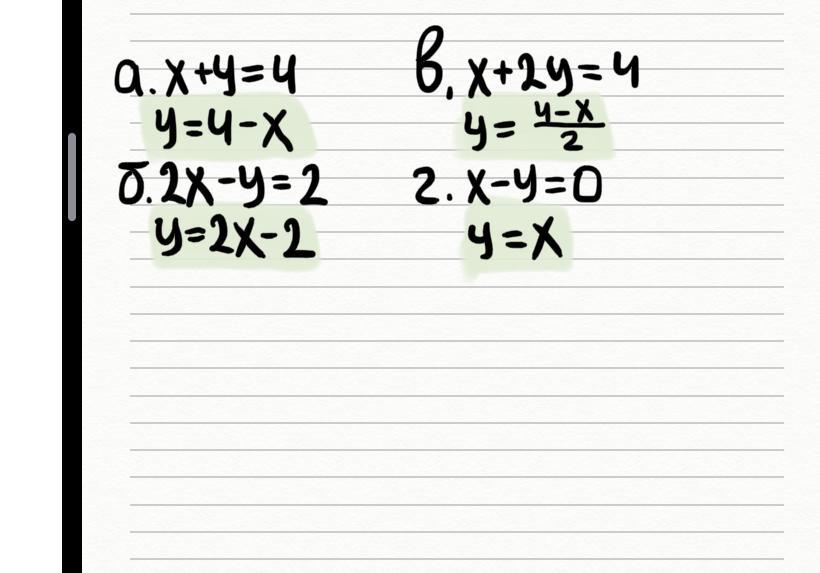 а. x+y=4
y=4-x
б. 2x-y=2
y=2x-2
в. x+2y=4
y= \frac{4-x}{2}
г. x-y=0
y=x